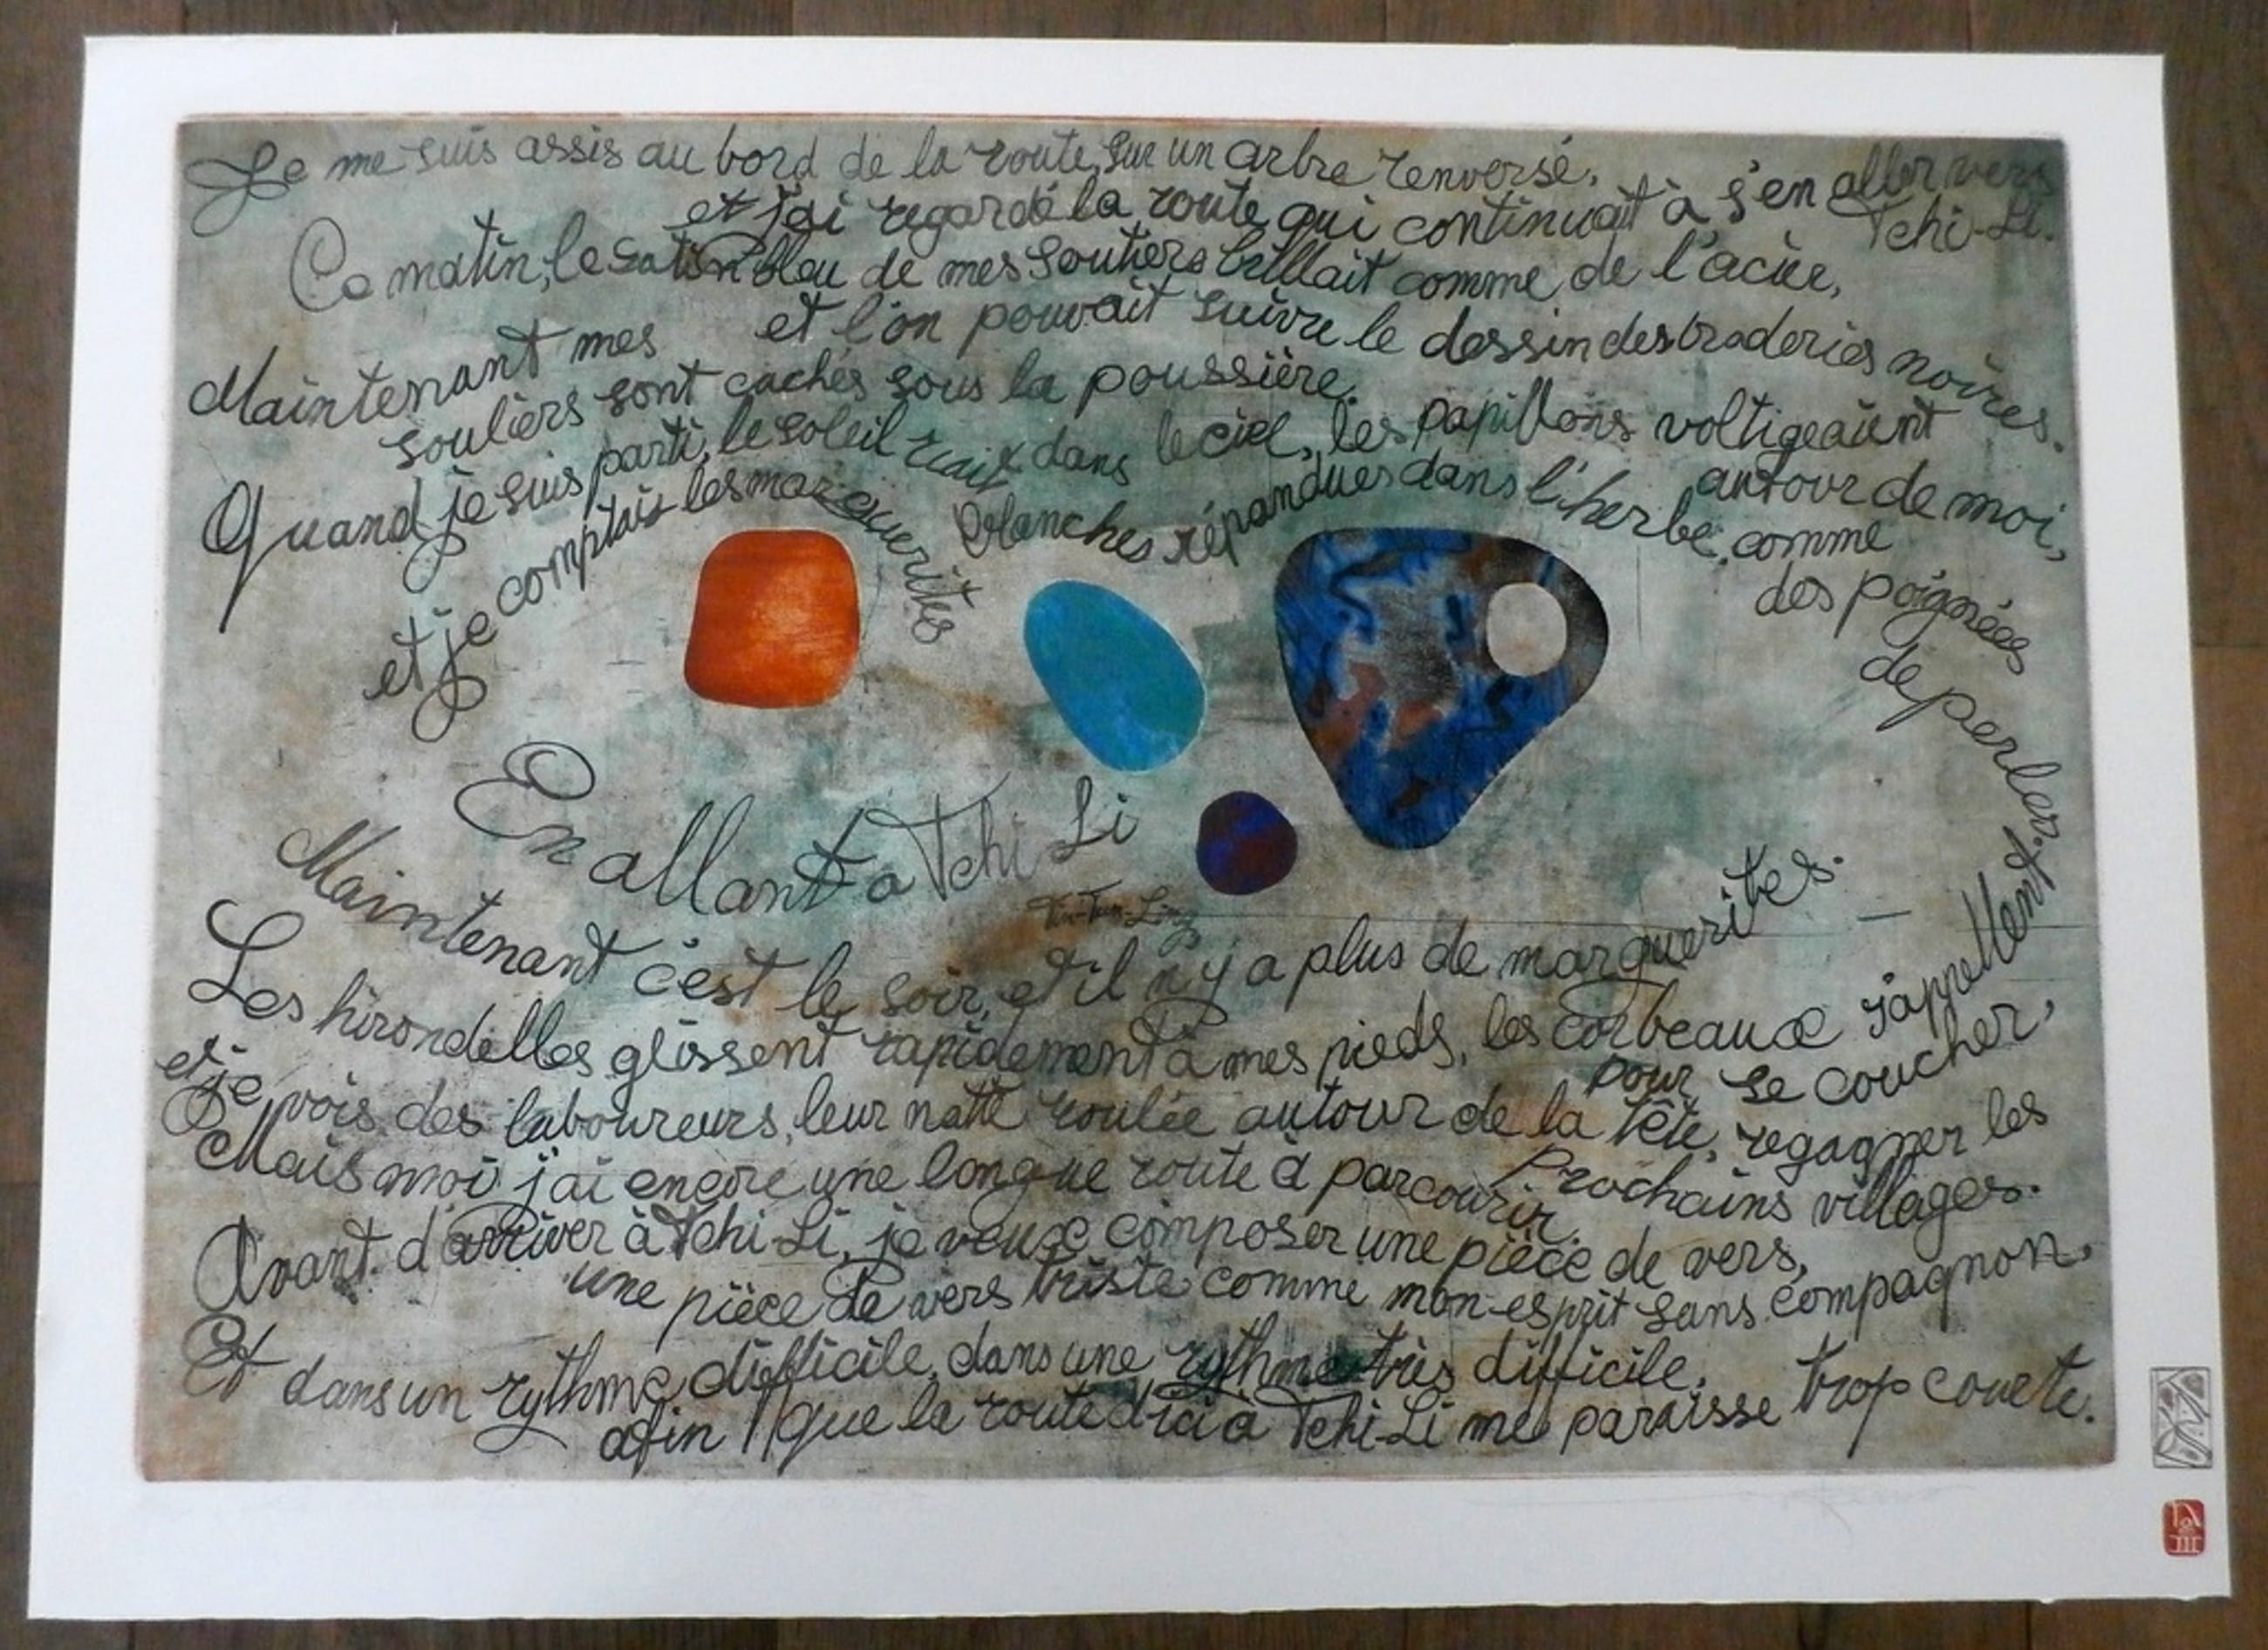 Je me suis assis au bord de la route, sur un arbre renversé,
et j'ai regardé la route qui continuait à s'en aller vers
Tchi-Li.
Ce matin, le satin bleu de mes souliers brillait comme de l'acier,
et l'on pouvait suivre le dessin des broderies noires.
Maintenant mes
souliers sont cachés sous la poussière.
Quand je suis parti, le soleil riait dans le ciel, les papillons voltigeaient
autour de moi,
et je comptais les marguerites
blanches répandues dans l'herbe, comme
des poignées
de perles.
En allant a Tchi Li
Tin-Tun-Ling
Maintenant c'est le soir, et il n'y a plus de marguerites.
Les hirondelles glissent rapidement à mes pieds, les corbeaux s'appellent
pour se coucher,
et je vois des laboureurs, leur natte roulée autour de la tête, regagner les
prochains villages.
Mais moi j'ai encore une longue route à parcourir.
Avant d'arriver à Tchi-Li, je veux composer une pièce de vers,
une pièce de vers triste comme mon esprit sans compagnon,
Et dans un rythme difficile, dans une rythme très difficile,
afin que la route d'ici à Tchi-Li me paraisse trop courte.